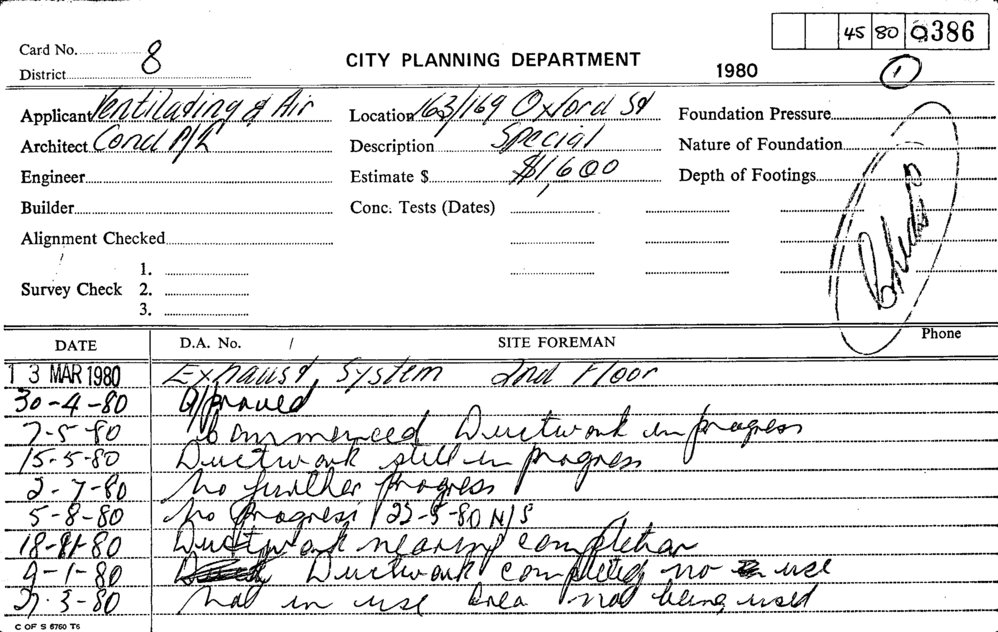 45 80 0386
Card No. 8
CITY PLANNING DEPARTMENT
1980 1
District
Applicant Ventilating & Air
Location 163/169 Oxford St
Foundation Pressure
Architect Cond P/L
Description Special
Nature of Foundation
Engineer
Estimate $ $1,600
Depth of Footings
Builder
Conc. Tests (Dates)
Alignment Checked
1.
Survey Check 2.
3.
Phone
DATE D.A. No. / SITE FOREMAN
13 MAR 1980 Exhaust System 2nd Floor
30-4-80 Approved
7-5-80 Commenced Ductwork in progress
15-5-80 Ductwork still in progress
2-7-80 No further progress
5-8-80 No progress N/S
Ductwork nearing completion
9-1-80 Ductwork completed no use
Not in use area not being used
C OF S 6760 T6